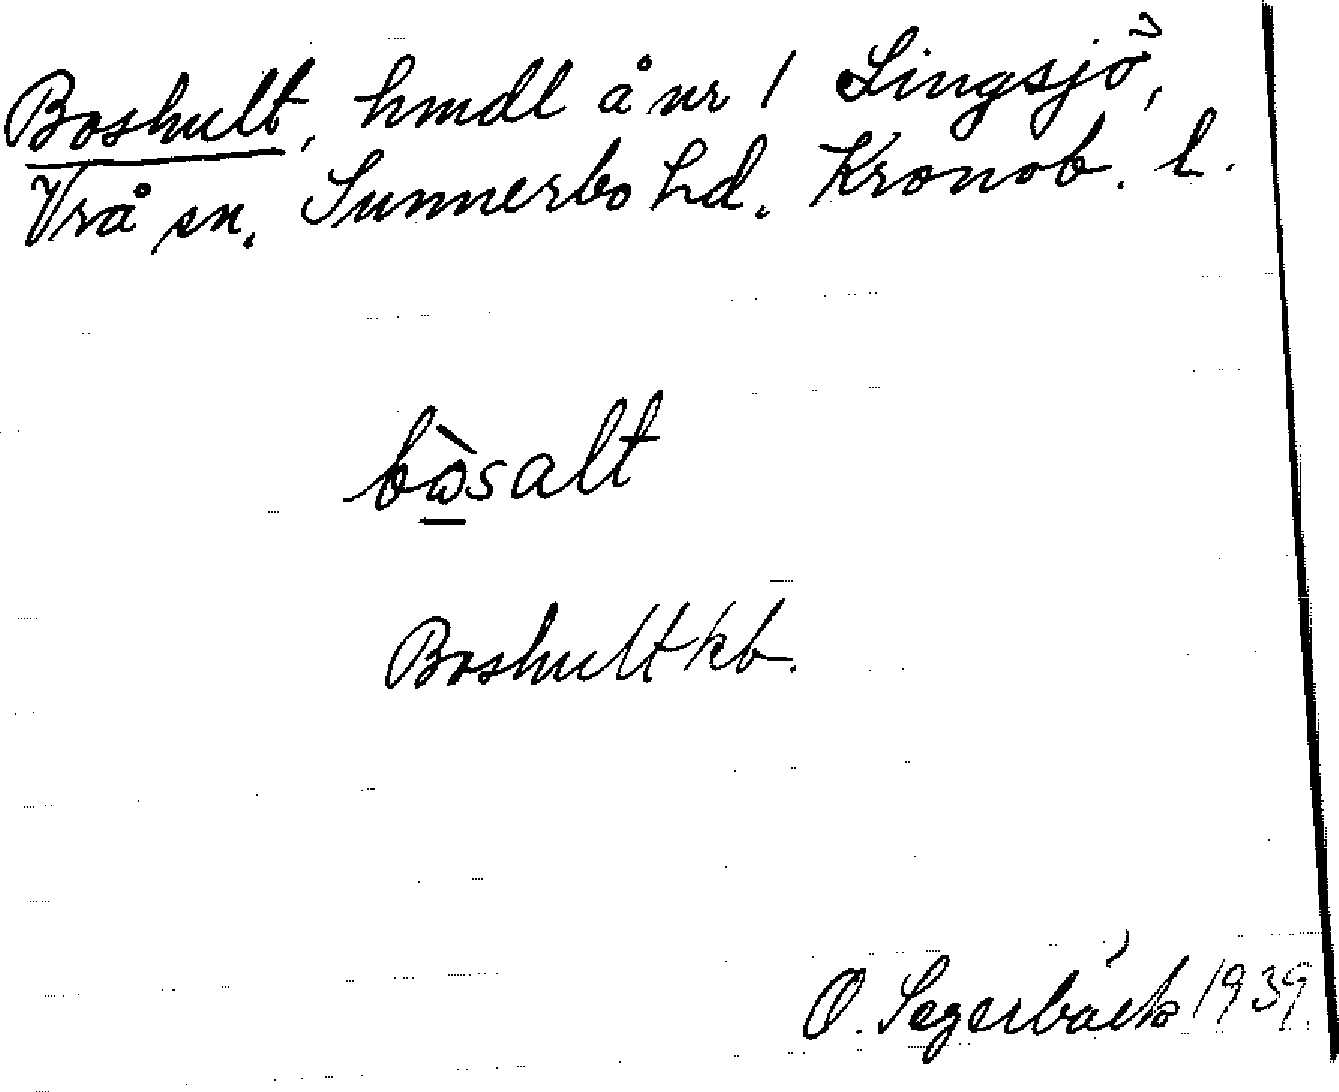 Boshult, hmdl å nr 1 Lingsjö,
Vrå sn. Sunnerbo hd. Kronob. l.
bòsalt
Boshult kb.
O. Segerbäck 1939.